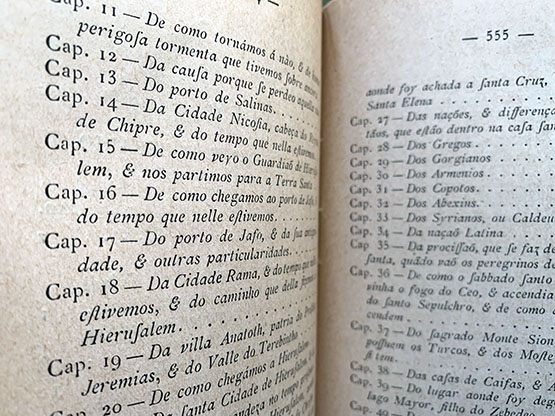 Cap. 11 — De como tornámos á não, & de
perigoſa tormenta que tivemos ſobre
Cap. 12 — Da cauſa porque ſe perdeo aquella
Cap. 13 — Do porto de Salinas
Cap. 14 — Da Cidade Nicoſia, cabeça do
de Chipre, & do tempo que nella eſtivemos
Cap. 15 — De como veyo o Guardiaõ de Hieruſa
lem, & nos partimos para a Terra Santa
Cap. 16 — De como chegamos ao porto de Jafo, &
do tempo que nelle eſtivemos
Cap. 17 — Do porto de Jafo, & da ſua
dade, & outras particularidades
Cap. 18 — Da Cidade Rama, & do tempo que
eſtivemos, & do caminho que della
Hieruſalem
Cap. 19 — Da villa Anatoth, patria do
Jeremias, & do Valle do Terebintho
Cap. 20 — De como chegámos a Hieruſalem
Da ſanta Cidade de Hieruſalem
no tempo
— 555 —
aonde foy achada a ſanta Cruz,
Santa Elena
Cap. 27 — Das nações, & differença
tãos, que eſtão dentro na caſa ſan
Cap. 28 — Dos Gregos
Cap. 29 — Dos Gorgianos
Cap. 30 — Dos Armenios
Cap. 31 — Dos Copotos
Cap. 32 — Dos Abexins
Cap. 33 — Dos Syrianos, ou Caldeu
Cap. 34 — Da naçaõ Latina
Cap. 35 — Da prociſſaõ, que ſe faz
ſanta, quãdo vaõ os peregrinos de
Cap. 36 — De como o ſabbado ſanto
vinha o fogo do Ceo, & accendia
do ſanto Sepulchro, & de como
cendem
Cap. 37 — Do ſagrado Monte Sion
poſſuem os Turcos, & dos Moſte
ſi tem
Cap. 38 — Das caſas de Caifas, & A
Cap. 39 — Do lugar aonde foy dego
lago Mayor, filho do Zebedeo